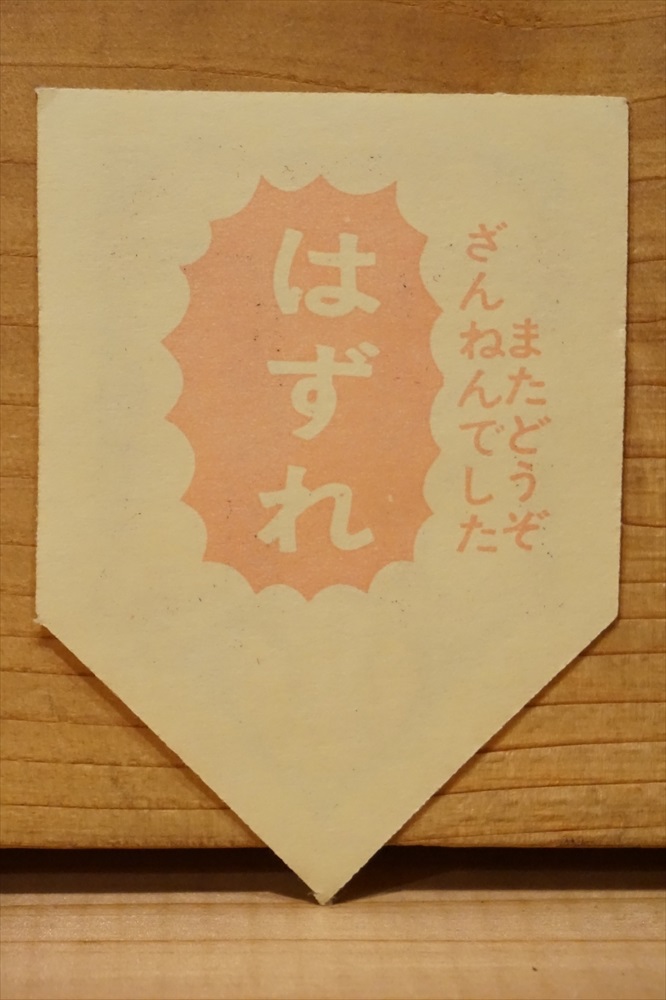 またどうぞ
ざんねんでした
はずれ